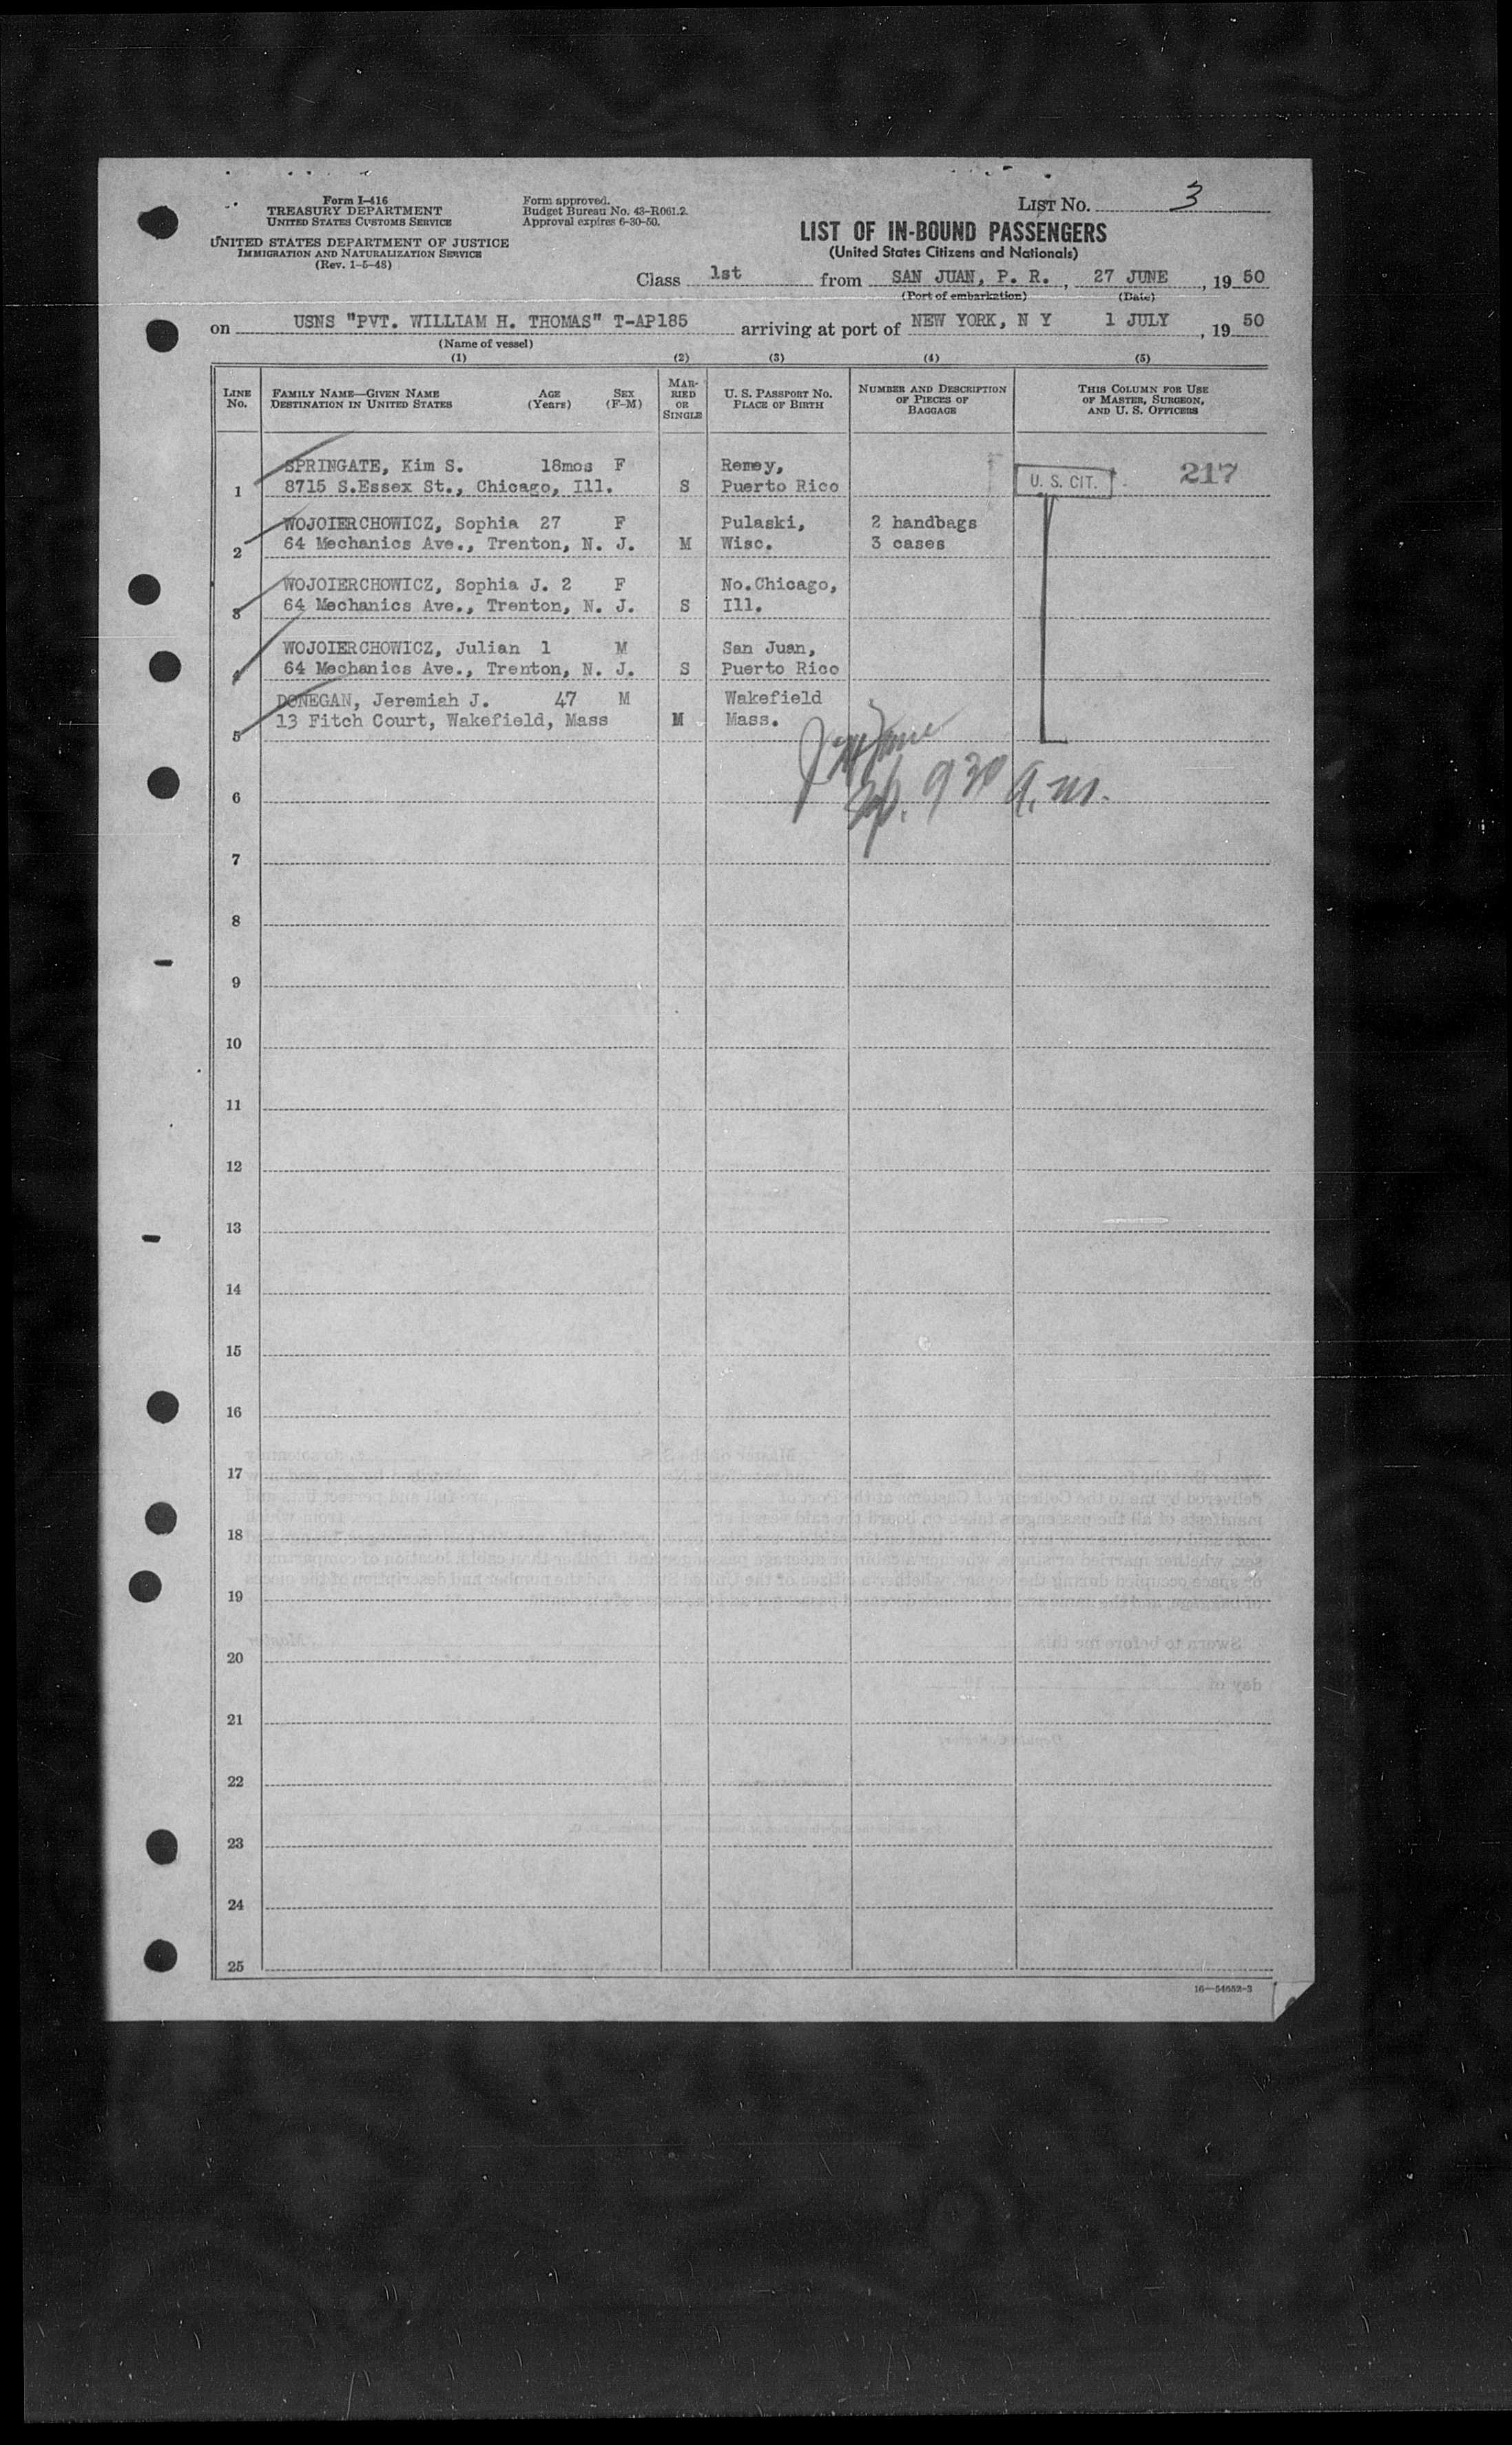 Form I-416
TREASURY DEPARTMENT
UNITED STATES CUSTOMS SERVICE
UNITED STATES DEPARTMENT OF JUSTICE
IMMIGRATION AND NATURALIZATION SERVICE
(Rev. 1-5-48)
Form approved.
Budget Bureau No. 43-R061.2.
Approval expires 6-30-50.
LIST NO. 3
LIST OF IN-BOUND PASSENGERS
(United States Citizens and Nationals)
Class 1st from SAN JUAN, P. R., 27 JUNE, 19 50
(Port of embarkation) (Date)
on USNS "PVT. WILLIAM H. THOMAS" T-AP185 arriving at port of NEW YORK, N Y 1 JULY, 19 50
(Name of vessel)
(1) (2) (3) (4) (5)
LINE No.
FAMILY NAME—GIVEN NAME AGE SEX
DESTINATION IN UNITED STATES (Years) (F-M)
MARRIED OR SINGLE
U. S. PASSPORT NO.
PLACE OF BIRTH
NUMBER AND DESCRIPTION
OF PIECES OF
BAGGAGE
THIS COLUMN FOR USE
OF MASTER, SURGEON,
AND U. S. OFFICERS
SPRINGATE, Kim S. 18mos F Remey,
1 8715 S.Essex St., Chicago, Ill. S Puerto Rico U. S. CIT. 217
WOJOIERCHOWICZ, Sophia 27 F Pulaski, 2 handbags
2 64 Mechanics Ave., Trenton, N. J. M Wisc. 3 cases
WOJOIERCHOWICZ, Sophia J. 2 F No.Chicago,
3 64 Mechanics Ave., Trenton, N. J. S Ill.
WOJOIERCHOWICZ, Julian 1 M San Juan,
4 64 Mechanics Ave., Trenton, N. J. S Puerto Rico
DONEGAN, Jeremiah J. 47 M Wakefield
5 13 Fitch Court, Wakefield, Mass M Mass.
9 30 A.m.
6
7
8
9
10
11
12
13
14
15
16
17
18
19
20
21
22
23
24
25
16—54552-3